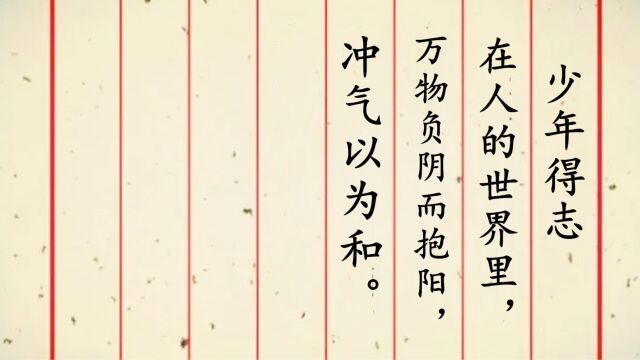 少年得志
在人的世界里，
万物负阴而抱阳，
冲气以为和。